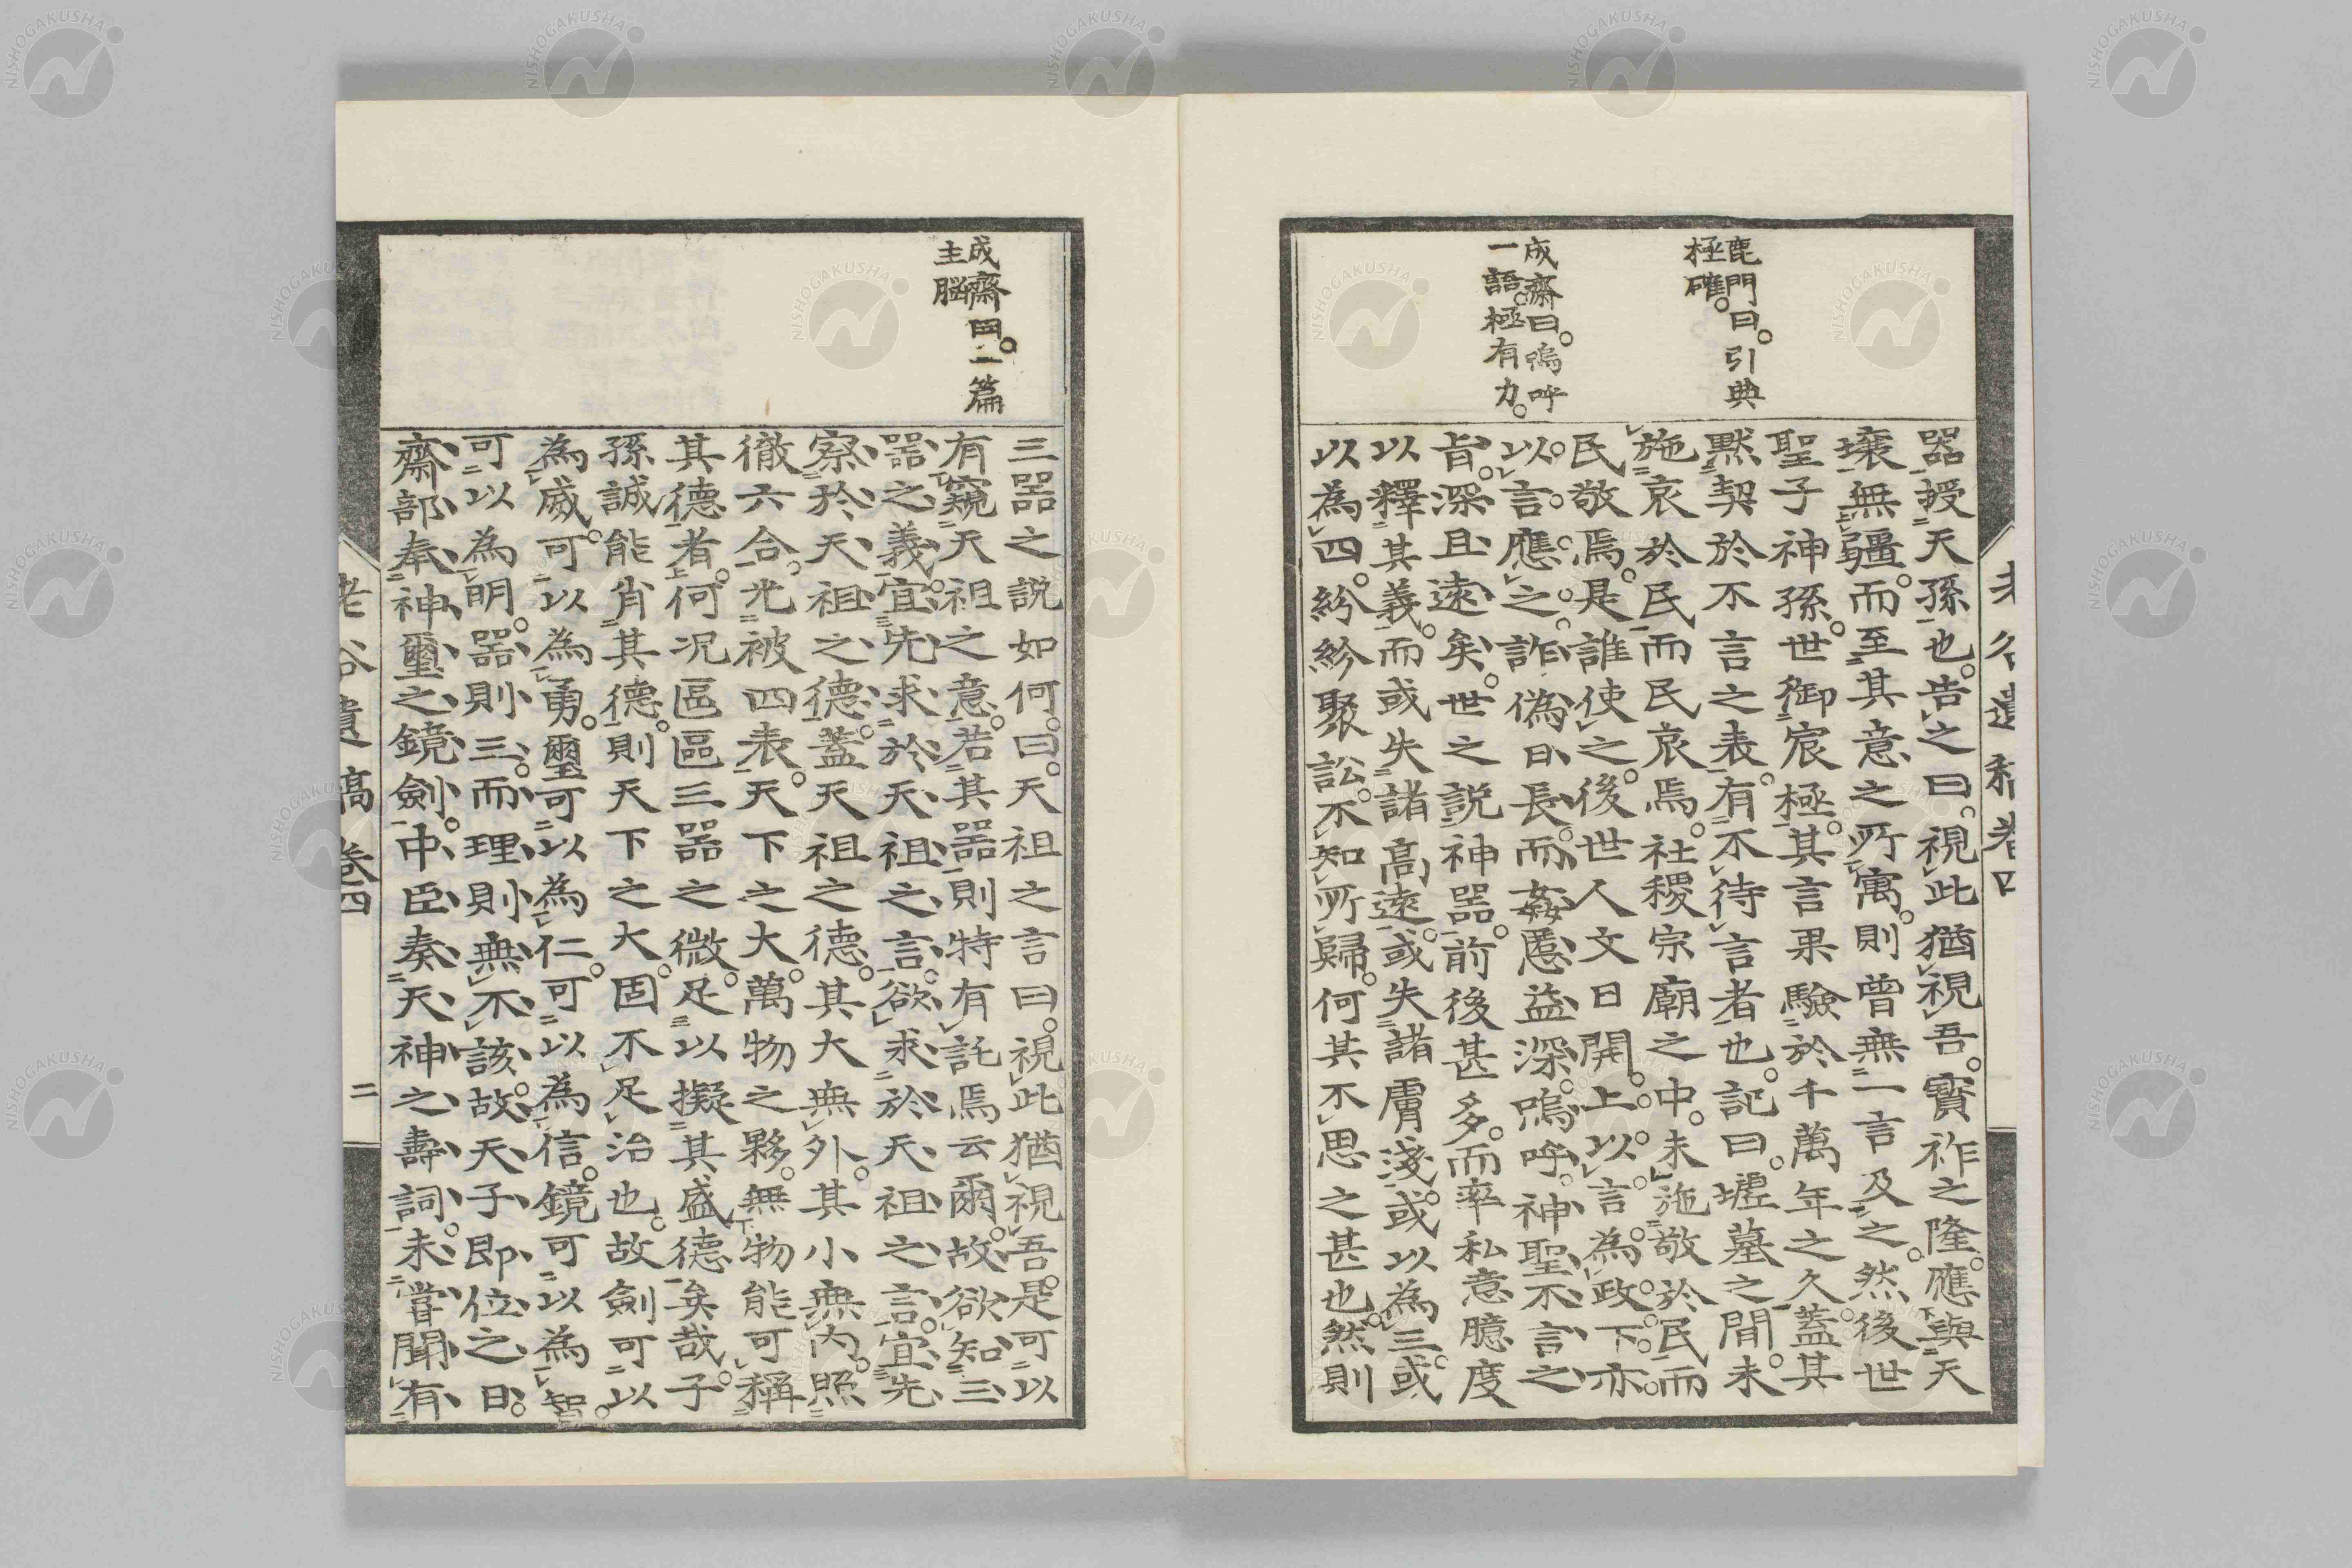 鹿門曰。引典
極確。
成齋曰。嗚呼
一語。極有力。
器授天孫也。告之曰。視此猶視吾。寶祚之隆。應與天
壤無疆。而至其意之所寓。則曾無一言及之。然後世
聖子神孫。世御宸極。其言果驗於千萬年之久。蓋其
默契於不言之表。有不待言者也。記曰。墟墓之間。未
施哀於民。而民哀焉。社稷宗廟之中。未施敬於民。而
民敬焉。是誰使之。後世人文日開。上以言為政。下亦
以言應之。詐偽日長。而姦慝益深。嗚呼。神聖不言之
旨。深且遠矣。世之說神器。前後甚多。而率私意臆度
以釋其義。而或失諸高遠。或失諸膚淺。或以為三。或
以為四。紛紛聚訟。不知所歸。何其不思之甚也。然則
成齋曰。一篇
主腦
三器之說如何。曰。天祖之言曰。視此猶視吾。是可以
有窺天祖之意。若其器則特有託焉云爾。故欲知三
器之義。宜先求於天祖之言。欲求於天祖之言。宜先
察於天祖之德。蓋天祖之德。其大無外。其小無內。照
徹六合。光被四表。天下之大。萬物之夥。無物能可稱
其德者。何況區區三器之微。足以擬其盛德矣哉。子
孫誠能肖其德。則天下之大。固不足治也。故劍可以
為威。可以為勇。璽可以為仁。可以為信。鏡可以為智。
可以為明。器則三。而理則無不該。故天子即位之日。
齋部奉神璽之鏡劍。中臣奏天神之壽詞。未嘗聞有
老谷遺稿 卷四
二